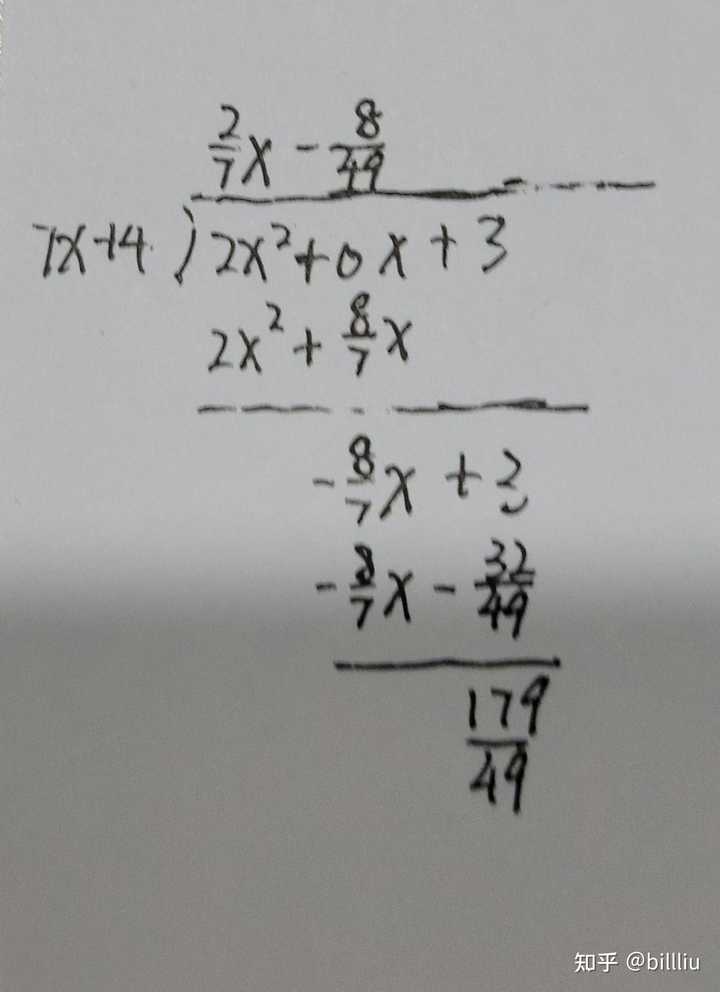 2/7 x - 8/49
7x+4 ) 2x² + 0x + 3
2x² + 8/7 x
- 8/7 x + 3
- 8/7 x - 32/49
179/49
知乎 @billliu